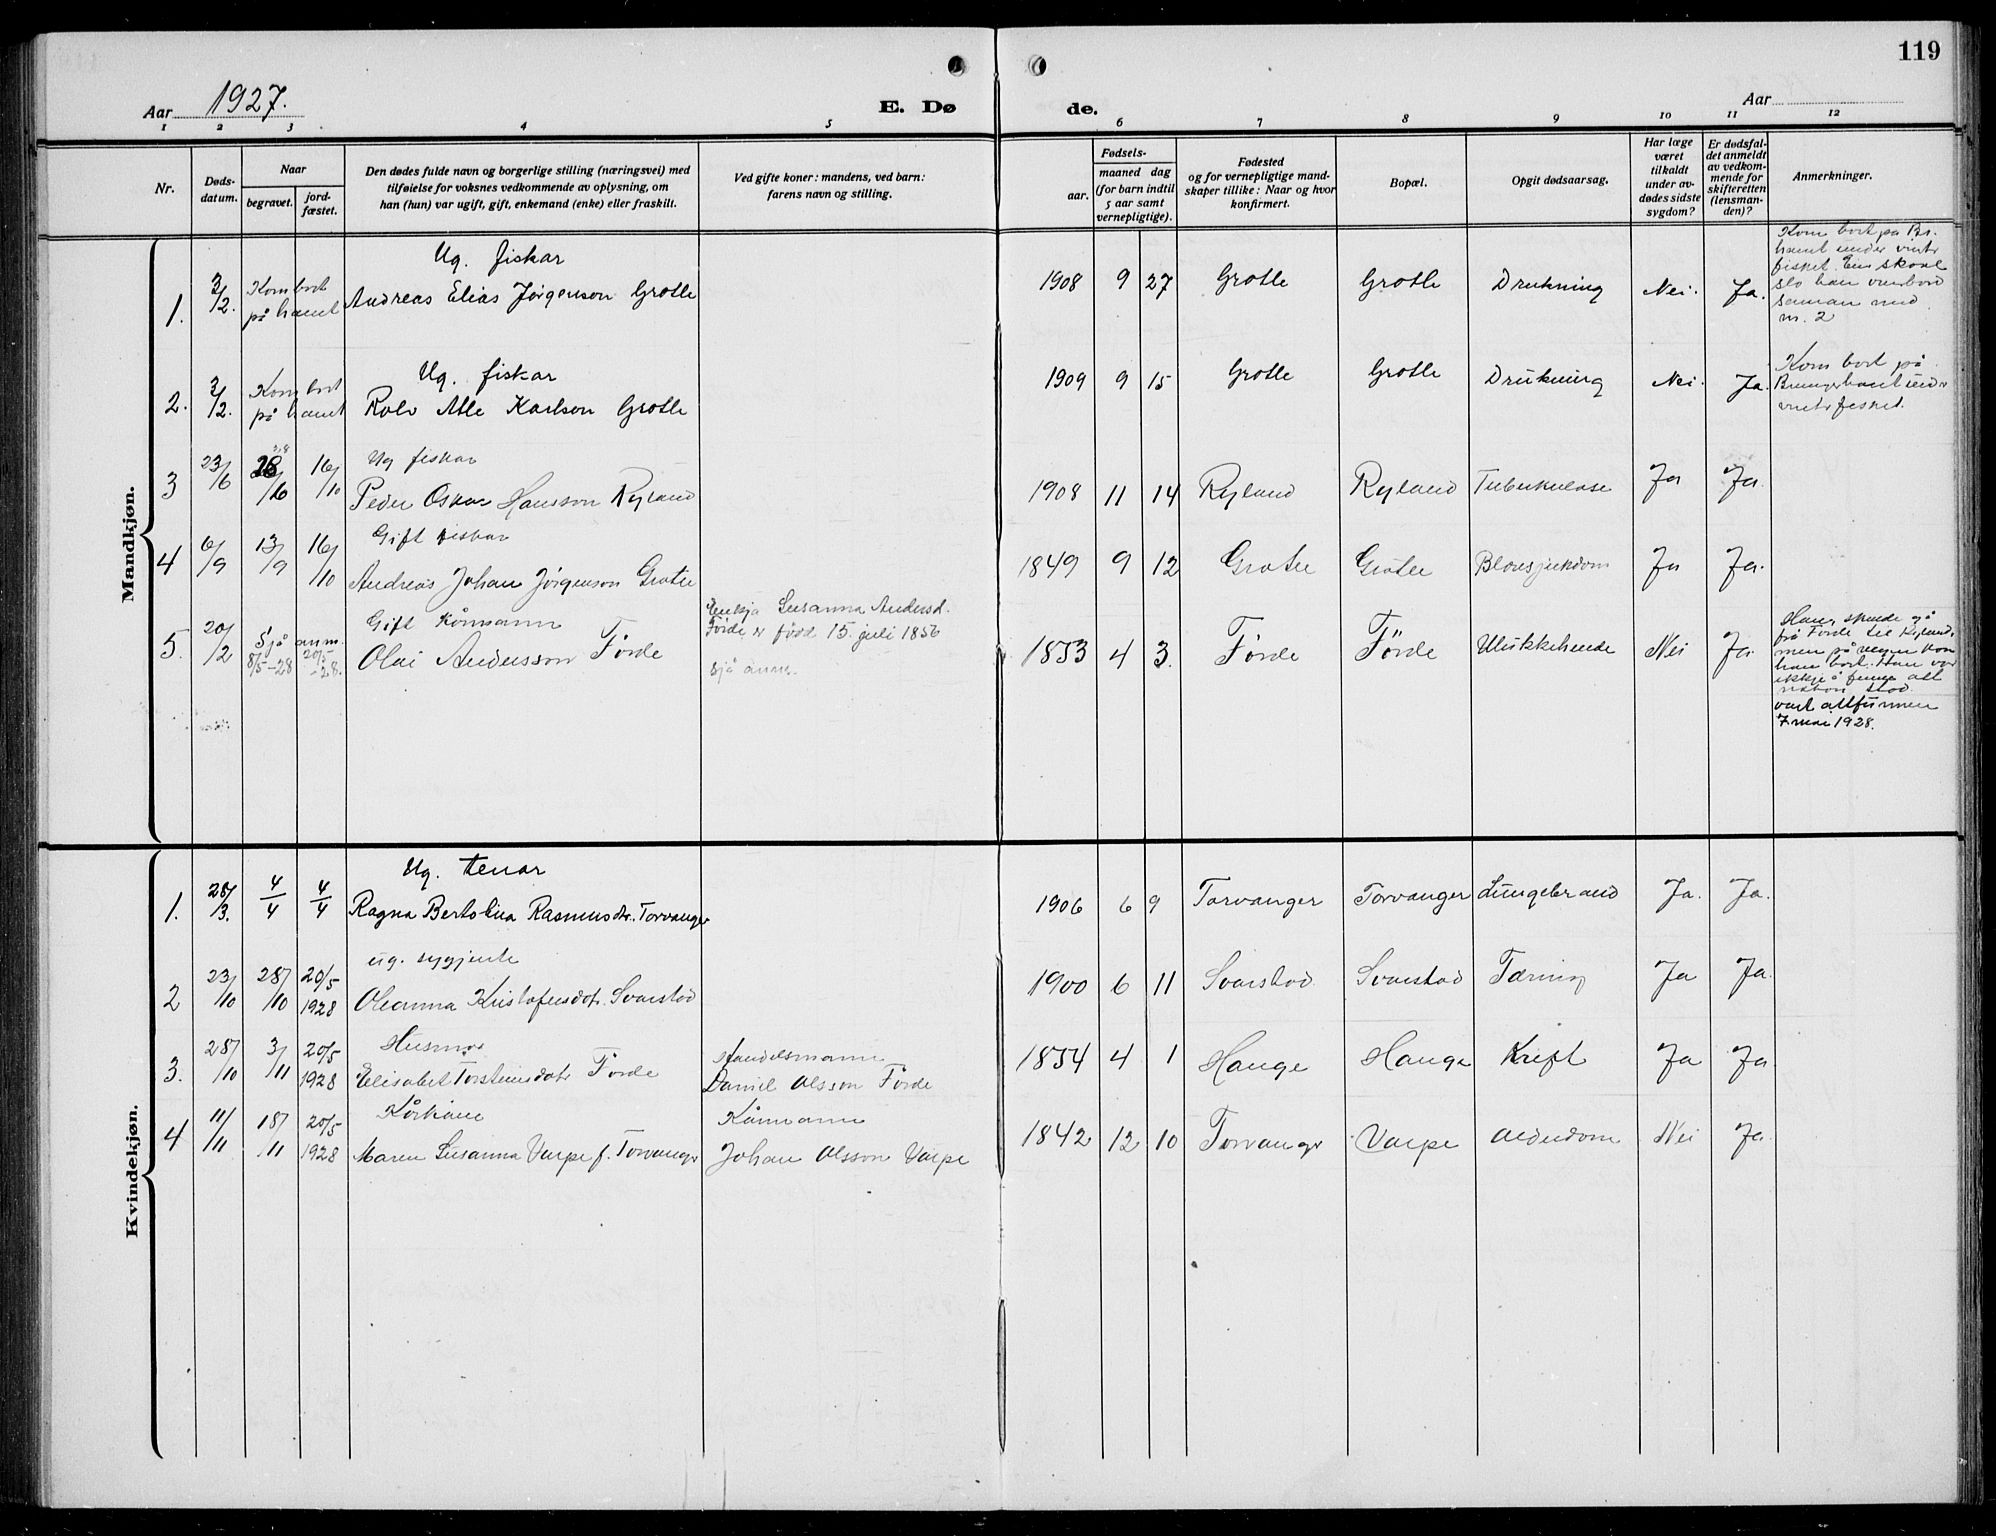 119
Aar 1927.
E. Døde.
Aar
1 2 3 4 5 6 7 8 9 10 11 12
Nr.
Døds-
datum.
Naar
begravet.
jord-
fæstet.
Den dødes fulde navn og borgerlige stilling (næringsvei) med
tilføielse for voksnes vedkommende av oplysning, om
han (hun) var ugift, gift, enkemand (enke) eller fraskilt.
Ved gifte koner: mandens, ved barn:
farens navn og stilling.
Fødsels-
aar.
maaned dag
(for barn indtil
5 aar samt
vernepligtige).
Fødested
og for vernepligtige mand-
skaper tillike: Naar og hvor
konfirmert.
Bopæl.
Opgit dødsaarsag.
Har læge
været
tilkaldt
under av-
dødes sidste
sygdom?
Er dødsfal-
det anmeldt
av vedkom-
mende for
skifteretten
(lensman-
den)?
Anmerkninger.
Mandkjøn.
Ug. fiskar
1. 3/2. Kom bort på havet Andreas Elias Jørgenson Grotle 1908 9 27 Grotle Grotle Drukning Nei. Ja.
Kom bort på Br.
havet under vintr
fisket. Ein skavl
slo han overbord
saman med
nr. 2
Ug. fiskar
2. 3/2. Kom bort på havet Rolv Atle Karlson Grotle 1909 9 15 Grotle Grotle Drukning Nei. Ja.
Kom bort på
havet under
vintrfisket.
Ug fiskar
3 23/6 28/6 16/10 Peder Oskar Hansson Ryland 1908 11 14 Ryland Ryland Tuberkulose Ja Ja.
Gift fiskar
4 6/9 13/9 16/10 Andreas Johan Jørgenson Grotle 1849 9 12 Grotle Grotle Blodsjukdom Ja Ja.
Gift Kårmann
5. 20/2 Sjå anm. 8/5-28 20/5-28. Olai Andersson Førde
Enkja Susanna Andersd.
Førde er född 15. juli 1856
sjå anm.
1853 4 3. Førde Førde Ulukkehende Nei Ja.
Han skulde gå
frå Førde til Ryland,
men på vegen kom
han bort. Han var
ikkje å finna alt
vart attfunnen
7 mai 1928.
Kvindekjøn.
Ug. tenar
1. 28/3. 4/4 4/4 Ragna Bertolina Rasmusdtr. Torvanger 1906 6 9 Torvanger Torvanger Lungebrand Ja. Ja.
ug. sygjente
2 23/10 28/10 20/5 1928 Oleanna Kristofersdotr. Svarstad 1900 6 11 Svarstad Svarstad Tæring Ja Ja.
Husmor
3. 28/10 3/11 20/5 1928 Elisabet Torsteinsdotr Førde
Handelsmann
Daniel Olsson Førde
1854 4 1 Hauge Hauge Kreft Ja Ja
Kårkone
4 11/11 18/11 20/5 1928 Maren Susanna Varpe f. Torvangr
Kårmann
Johan Olsson Varpe
1842 12 10 Torvangr Varpe Alderdom Nei Ja.